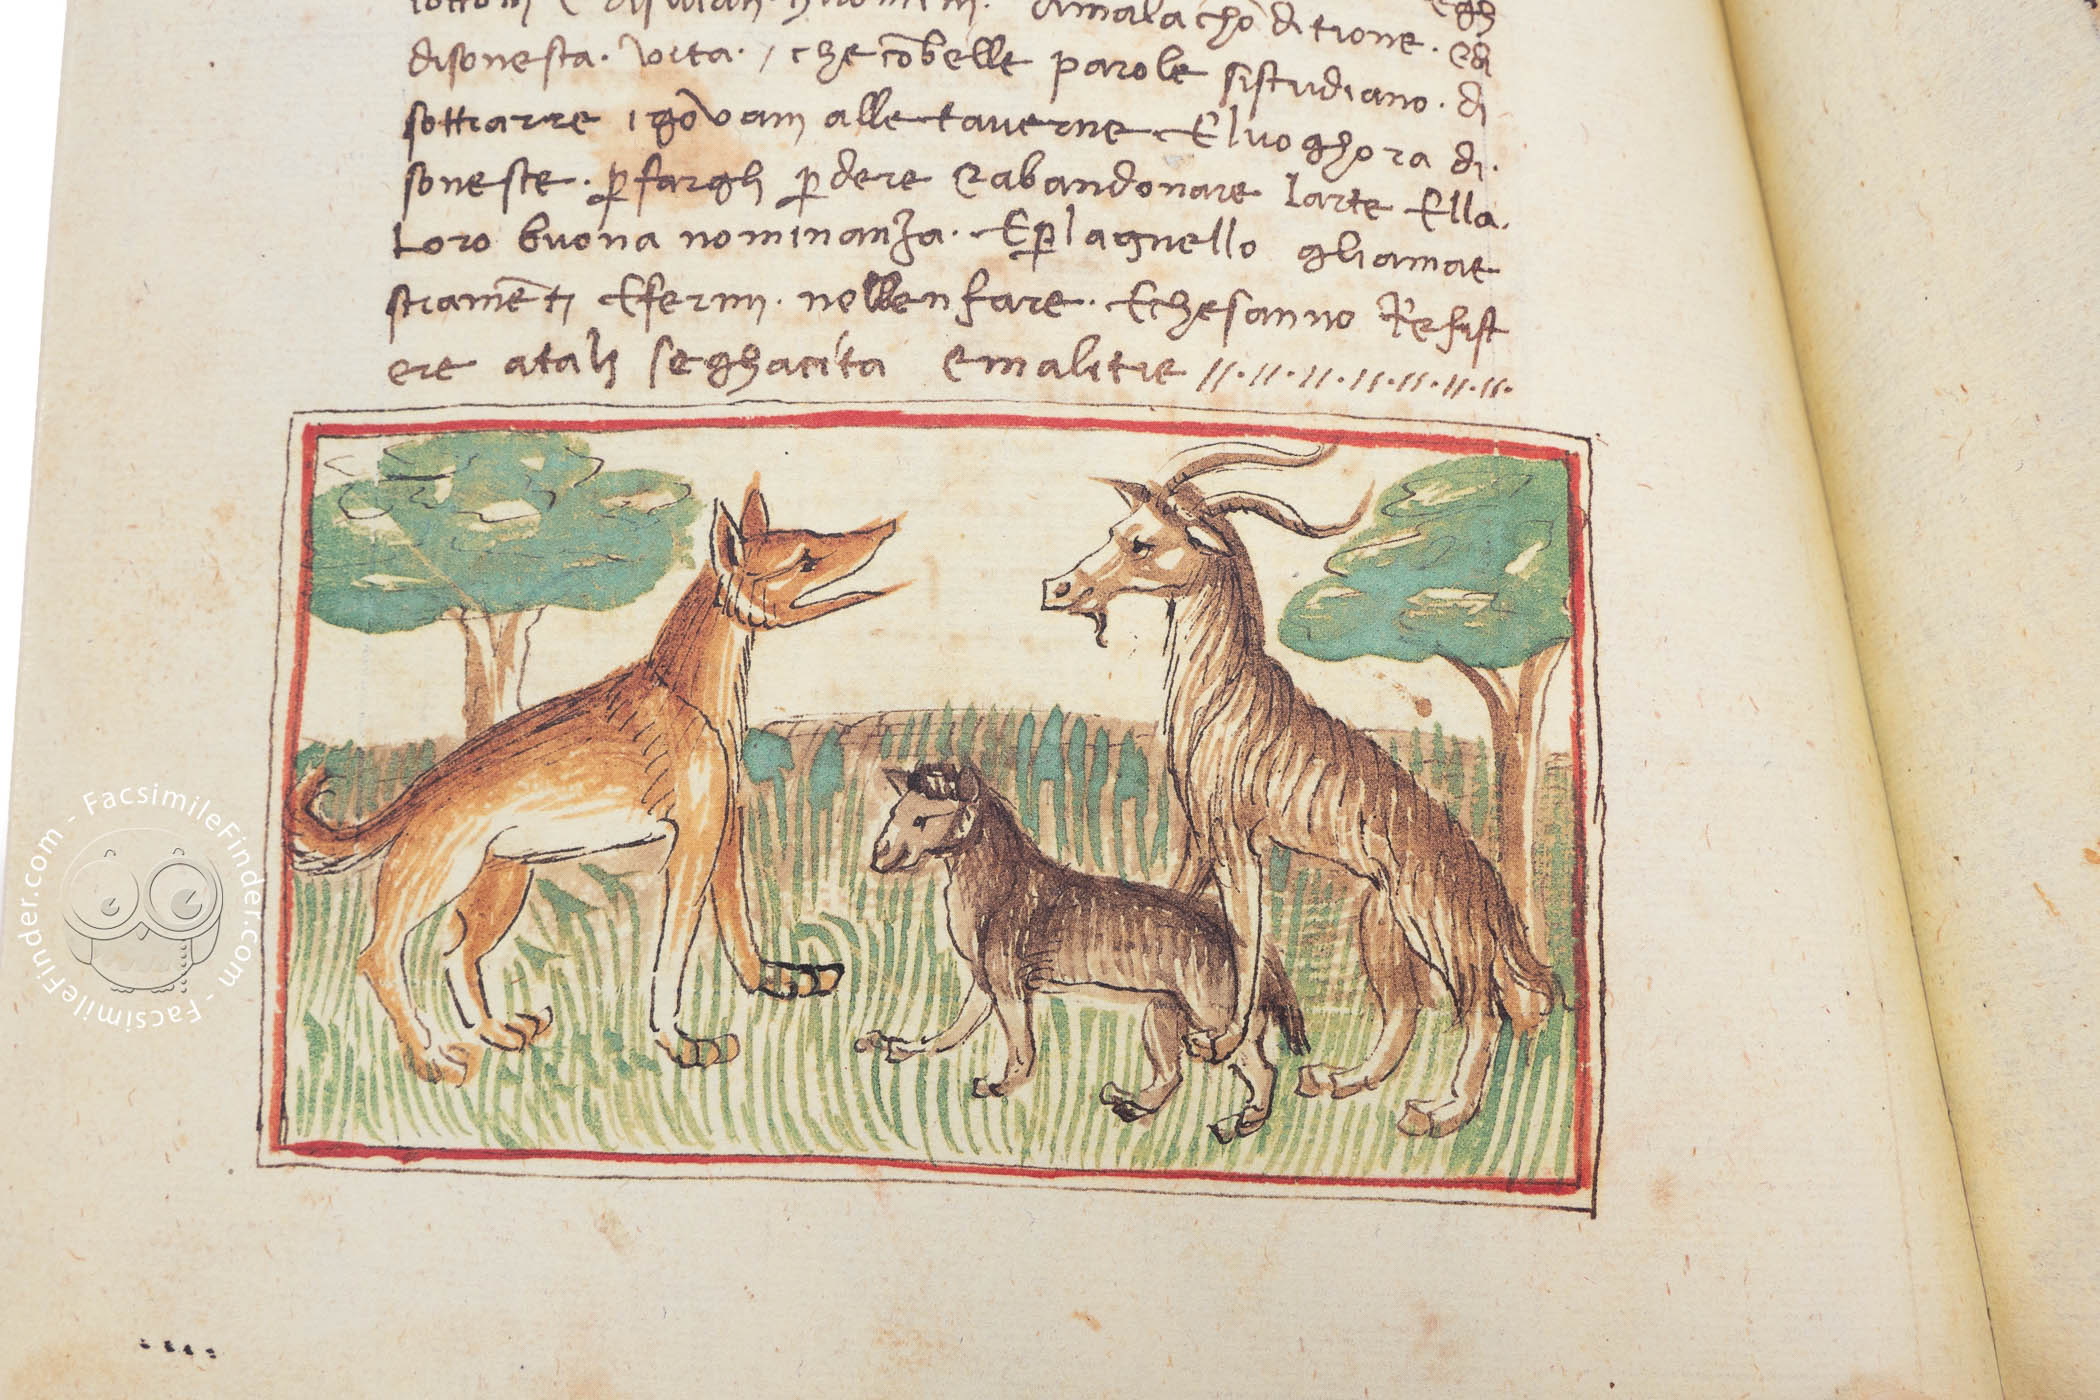 disonesta. vita. / che cōbelle parole sistudiano. di
sottrarre i gōvani alle taverne. El luoghora di.
soneste. p̱ fargli p̱dere e abandonare larte Ella.
loro buona nominanza. E p̱ lagnello gliamae
stramēti E fermi. nelben fare. E che sanno Resist
ere atali seghacita e malitie //.//.//.//.//.//.//.
FacsimileFinder.com - FacsimileFinder.com - FacsimileFinder.com